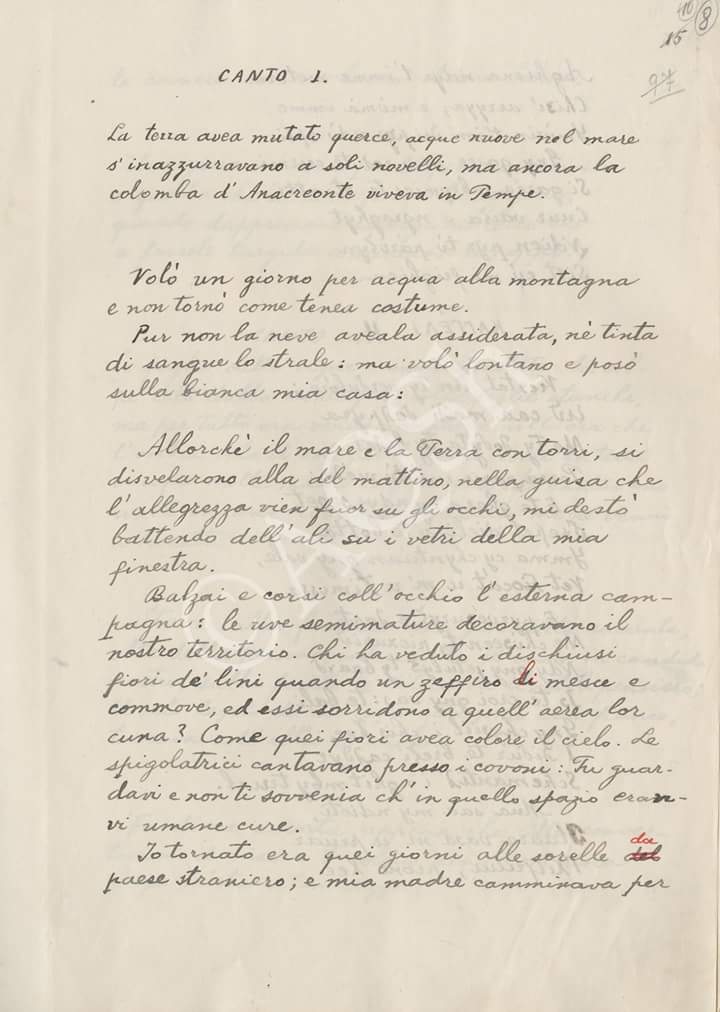 10
8
15
CANTO 1.
La terra avea mutato querce, acque nuove nel mare
s'inazzurravano a soli novelli, ma ancora la
colomba d'Anacreonte viveva in Tempe.
Volò un giorno per acqua alla montagna
e non tornò come tenea costume.
Pur non la neve aveala assiderata, nè tinta
di sangue lo strale: ma volò lontano e posò
sulla bianca mia casa:
Allorchè il mare e la Terra con torri, si
disvelarono alla del mattino, nella guisa che
l'allegrezza vien fuor su gli occhi, mi destò
battendo dell'ali su i vetri della mia
finestra.
Balzai e corsi coll'occhio l'esterna cam-
pagna: le uve semimature decoravano il
nostro territorio. Chi ha veduto i dischiusi
fiori de' lini quando un zeffiro li mesce e
commove, ed essi sorridono a quell'aerea lor
cuna? Come quei fiori avea colore il cielo. Le
spigolatrici cantavano presso i covoni: Tu guar-
davi e non ti sovvenia ch'in quello spazio eran-
vi umane cure.
Io tornato era quei giorni alle sorelle del da
paese straniero; e mia madre camminava per